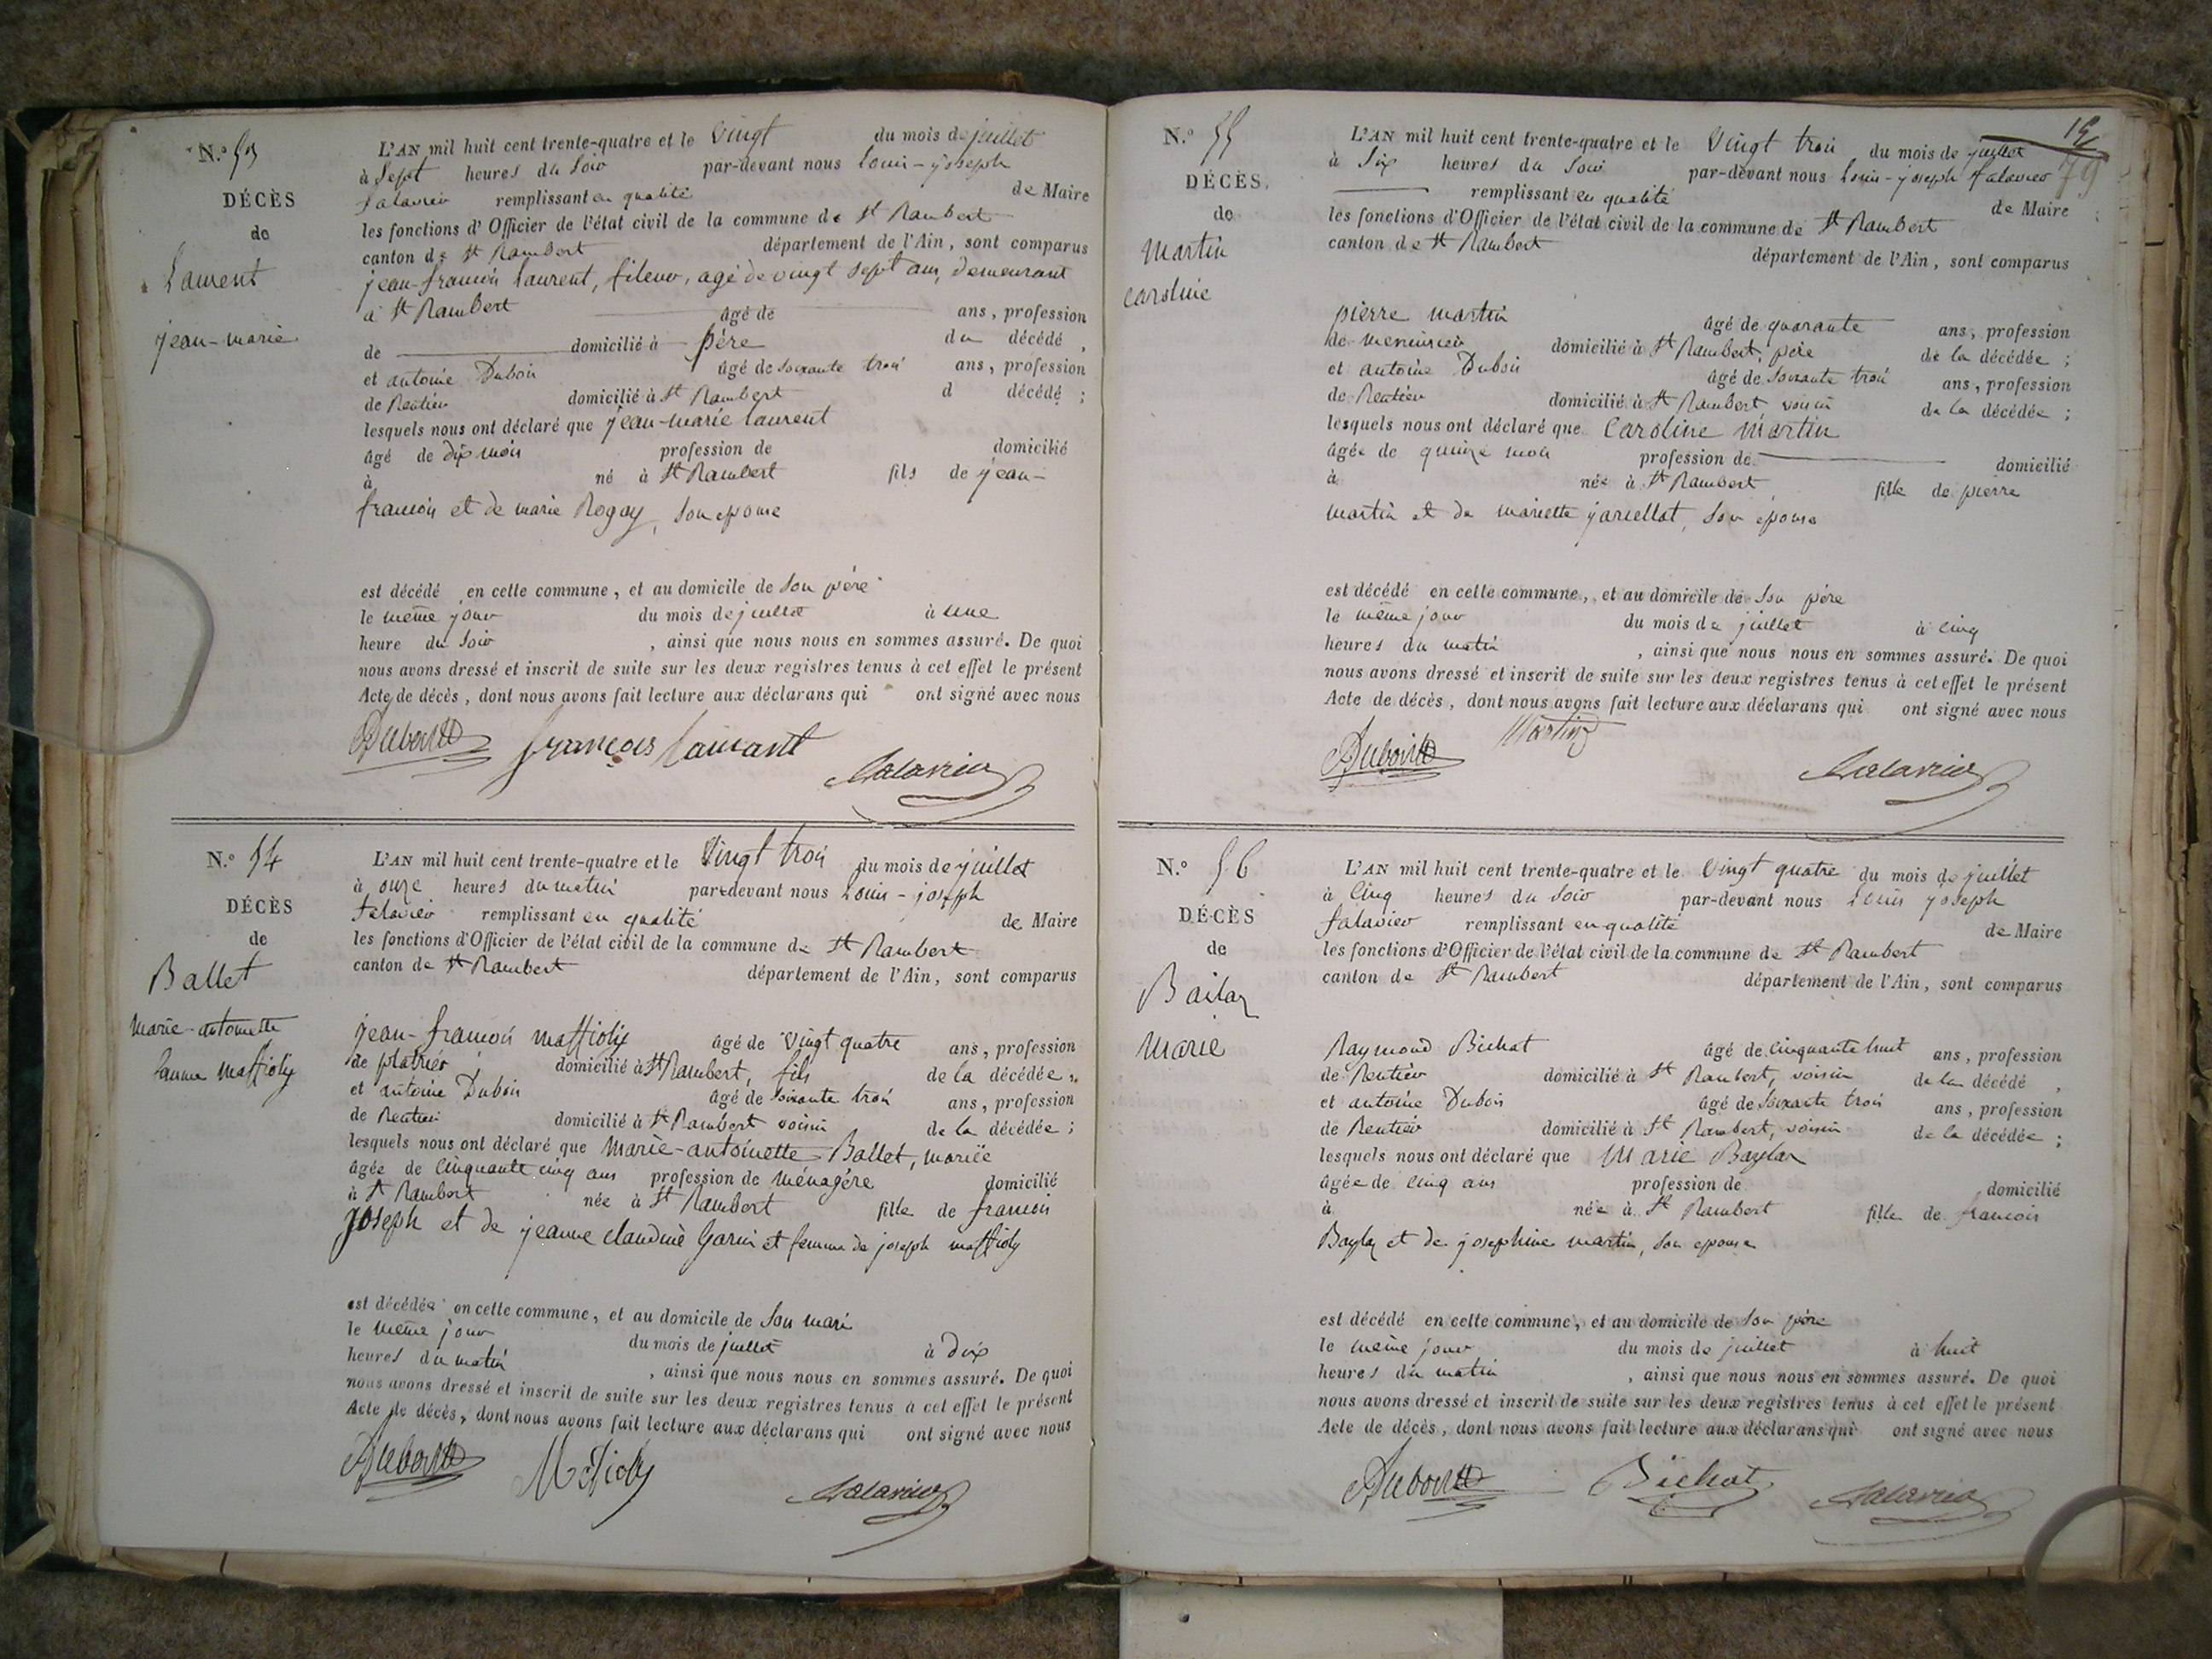 N.° 53
DÉCÈS
de
Laurent
jean-marie
L'AN mil huit cent trente-quatre et le vingt du mois de juillet
à Sept heures du Soir par-devant nous Louis-joseph
falavier remplissant en qualité de Maire
les fonctions d'Officier de l'état civil de la commune de St Rambert
canton de St Rambert département de l'Ain, sont comparus
jean-francois laurent, fileur, agé de vingt sept ans, demeurant
a St Rambert âgé de ans, profession
de domicilié à père du décédé,
et antoine Dubois âgé de soixante trois ans, profession
de Rentier domicilié à St Rambert d décédé;
lesquels nous ont déclaré que jean-marie laurent
âgé de dix mois profession de domicilié
à né à St Rambert fils de jean-
francois et de marie Rogay, son epouse
est décédé en cette commune, et au domicile de son père
le même jour du mois de juillet à une
heure du soir, ainsi que nous nous en sommes assuré. De quoi
nous avons dressé et inscrit de suite sur les deux registres tenus à cet effet le présent
Acte de décès, dont nous avons fait lecture aux déclarans qui ont signé avec nous
Dubois françois laurant falavier
N.° 54
DÉCÈS
de
Ballet
Marie-antoinette
femme maffioly
L'AN mil huit cent trente-quatre et le Vingt trois du mois de juillet
à onze heures du matin par-devant nous Louis-joseph
falavier remplissant en qualité de Maire
les fonctions d'Officier de l'état civil de la commune de St Rambert
canton de St Rambert département de l'Ain, sont comparus
jean-francois maffioly âgé de vingt quatre ans, profession
de platrier domicilié à St Rambert, fils de la décédée,
et antoine Dubois âgé de soixante trois ans, profession
de Rentier domicilié à St Rambert voisin de la décédée;
lesquels nous ont déclaré que Marie-antoinette Ballet, mariée
âgée de cinquante cinq ans profession de ménagère domicilié
à St Rambert née à St Rambert fille de francois
joseph et de jeanne claudine Garin et femme de joseph maffioly
est décédée en cette commune, et au domicile de son mari
le même jour du mois de juillet à dix
heures du matin, ainsi que nous nous en sommes assuré. De quoi
nous avons dressé et inscrit de suite sur les deux registres tenus à cet effet le présent
Acte de décès, dont nous avons fait lecture aux déclarans qui ont signé avec nous
Dubois Mafioly falavier
79
N.° 55
DÉCÈS.
de
Martin
caroline
L'AN mil huit cent trente-quatre et le Vingt trois du mois de juillet
à Six heures du soir par-devant nous Louis-joseph falavier
remplissant en qualité de Maire
les fonctions d'Officier de l'état civil de la commune de St Rambert
canton de St Rambert département de l'Ain, sont comparus
pierre martin âgé de quarante ans, profession
de menuisier domicilié à St Rambert, père de la décédée;
et antoine Dubois âgé de soixante trois ans, profession
de Rentier domicilié à St Rambert voisin de la décédée;
lesquels nous ont déclaré que Caroline martin
âgée de quinze mois profession de domicilié
à née à St Rambert fille de pierre
martin et de mariette jarcellat, son epouse
est décédé en cette commune, et au domicile de son père
le même jour du mois de juillet à cinq
heures du matin, ainsi que nous nous en sommes assuré. De quoi
nous avons dressé et inscrit de suite sur les deux registres tenus à cet effet le présent
Acte de décès, dont nous avons fait lecture aux déclarans qui ont signé avec nous
Dubois Martin falavier
N.° 56
DÉCÈS
de
Bailay
Marie
L'AN mil huit cent trente-quatre et le vingt quatre du mois de juillet
à Cinq heures du soir par-devant nous Louis joseph
falavier remplissant en qualité de Maire
les fonctions d'Officier de l'état civil de la commune de St Rambert
canton de St Rambert département de l'Ain, sont comparus
Raymond Bichat âgé de cinquante huit ans, profession
de Rentier domicilié à St Rambert, voisin de la décédé,
et antoine Dubois âgé de soixante trois ans, profession
de Rentier domicilié à St Rambert, voisin de la décédée;
lesquels nous ont déclaré que Marie Baylay
âgée de cinq ans profession de domicilié
à née à St Rambert fille de francois
Baylay et de josephine martin, son epouse
est décédé en cette commune, et au domicile de son père
le même jour du mois de juillet à huit
heures du matin, ainsi que nous nous en sommes assuré. De quoi
nous avons dressé et inscrit de suite sur les deux registres tenus à cet effet le présent
Acte de décès, dont nous avons fait lecture aux déclarans qui ont signé avec nous
Dubois Bichat falavier